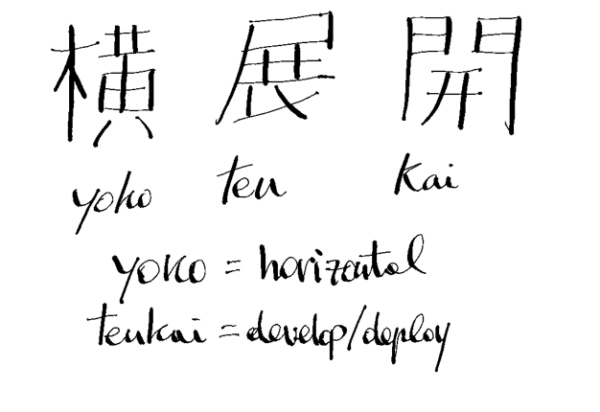 横 展 開
yoko ten kai
yoko = horizontal
tenkai = develop/deploy